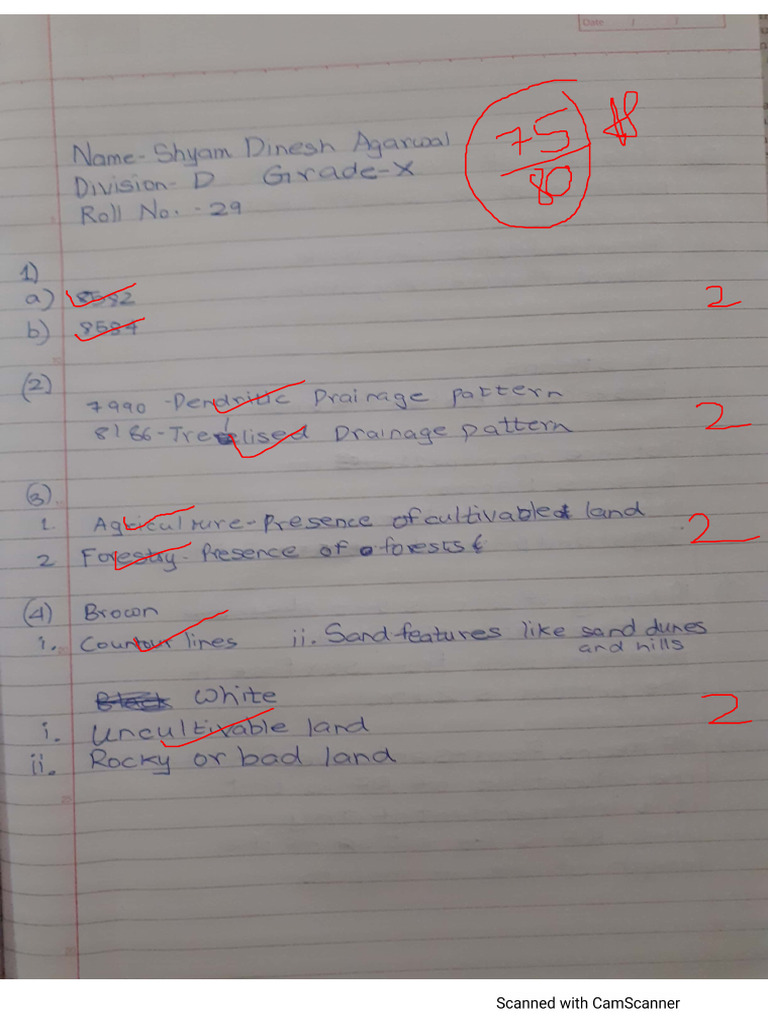 Date / /
Name - Shyam Dinesh Agarwal
75
80
Division - D Grade - X
Roll No. - 29
1)
a) 8582 2
b) 8584
(2)
7990 - Dendritic Drainage pattern
8186 - Trellised Drainage pattern 2
(3)
1. Agriculture - Presence of cultivable land
2 Forestry - Presence of forests 2
(4) Brown
i. Countour lines ii. Sand features like sand dunes
and hills
Black White
i. Uncultivable land 2
ii. Rocky or bad land
Scanned with CamScanner